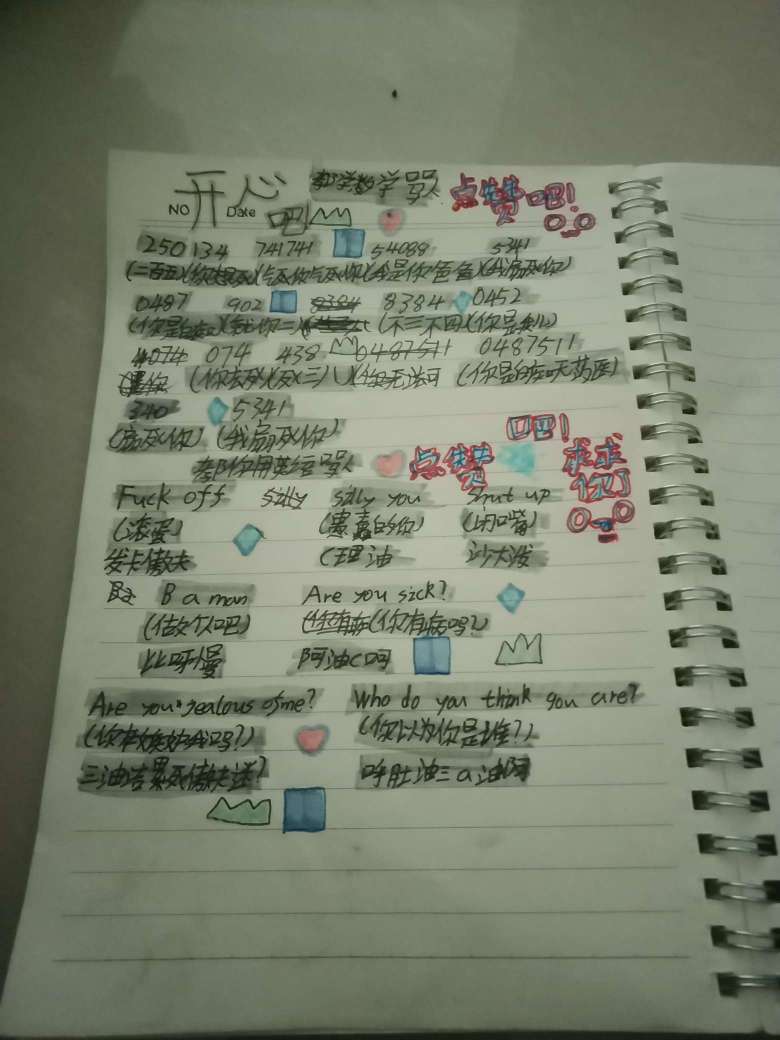 开心吧 教你用数学骂人 点赞吧!
NO Date
250 134 741741 54088 5341
(二百五)(你想死)(气死你气死你)(我是你爸爸)(我扇死你)
0487 902 8384 8384 0452
(你是白痴)(你二)(不三不四)(你是)
4074 074 438 0487511 0487511
是你 (你去死)(死三八)(你无法可 (你是白痴吃药医)
340 5341
(扇死你) (我扇死你)
教你用英语骂人 点赞吧! 求求你了
Fuck off silly silly you Shut up
(滚蛋) (愚蠢的你) (闭嘴)
发卡傲夫 C理油 沙大泼
Ba B a man Are you sick?
(做个人吧) 你有病(你有病吗?)
比呀慢 阿油C呵
Are you jealous ofme? Who do you think you are?
(你在嫉妒我吗?) (你以为你是谁?)
三油吉累死傲夫迷? 呼肚油三a油阿